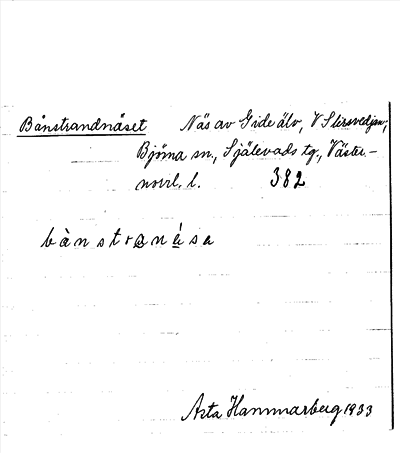 Bånstrandnäset Näs av Gide älv, V Slersvedjan,
Björna sn., Själevads tg., Väster-
norrl. l. 382
bànstranésa
Asta Hammarberg 1933